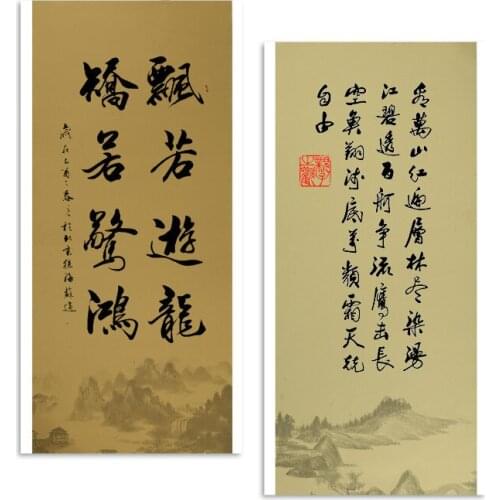 飄若遊龍
矯若驚鴻
歲在乙酉之春
看萬山红遍層林尽染漫
江碧透百舸争流鷹击長
空魚翔浅底萬類霜天競
自由